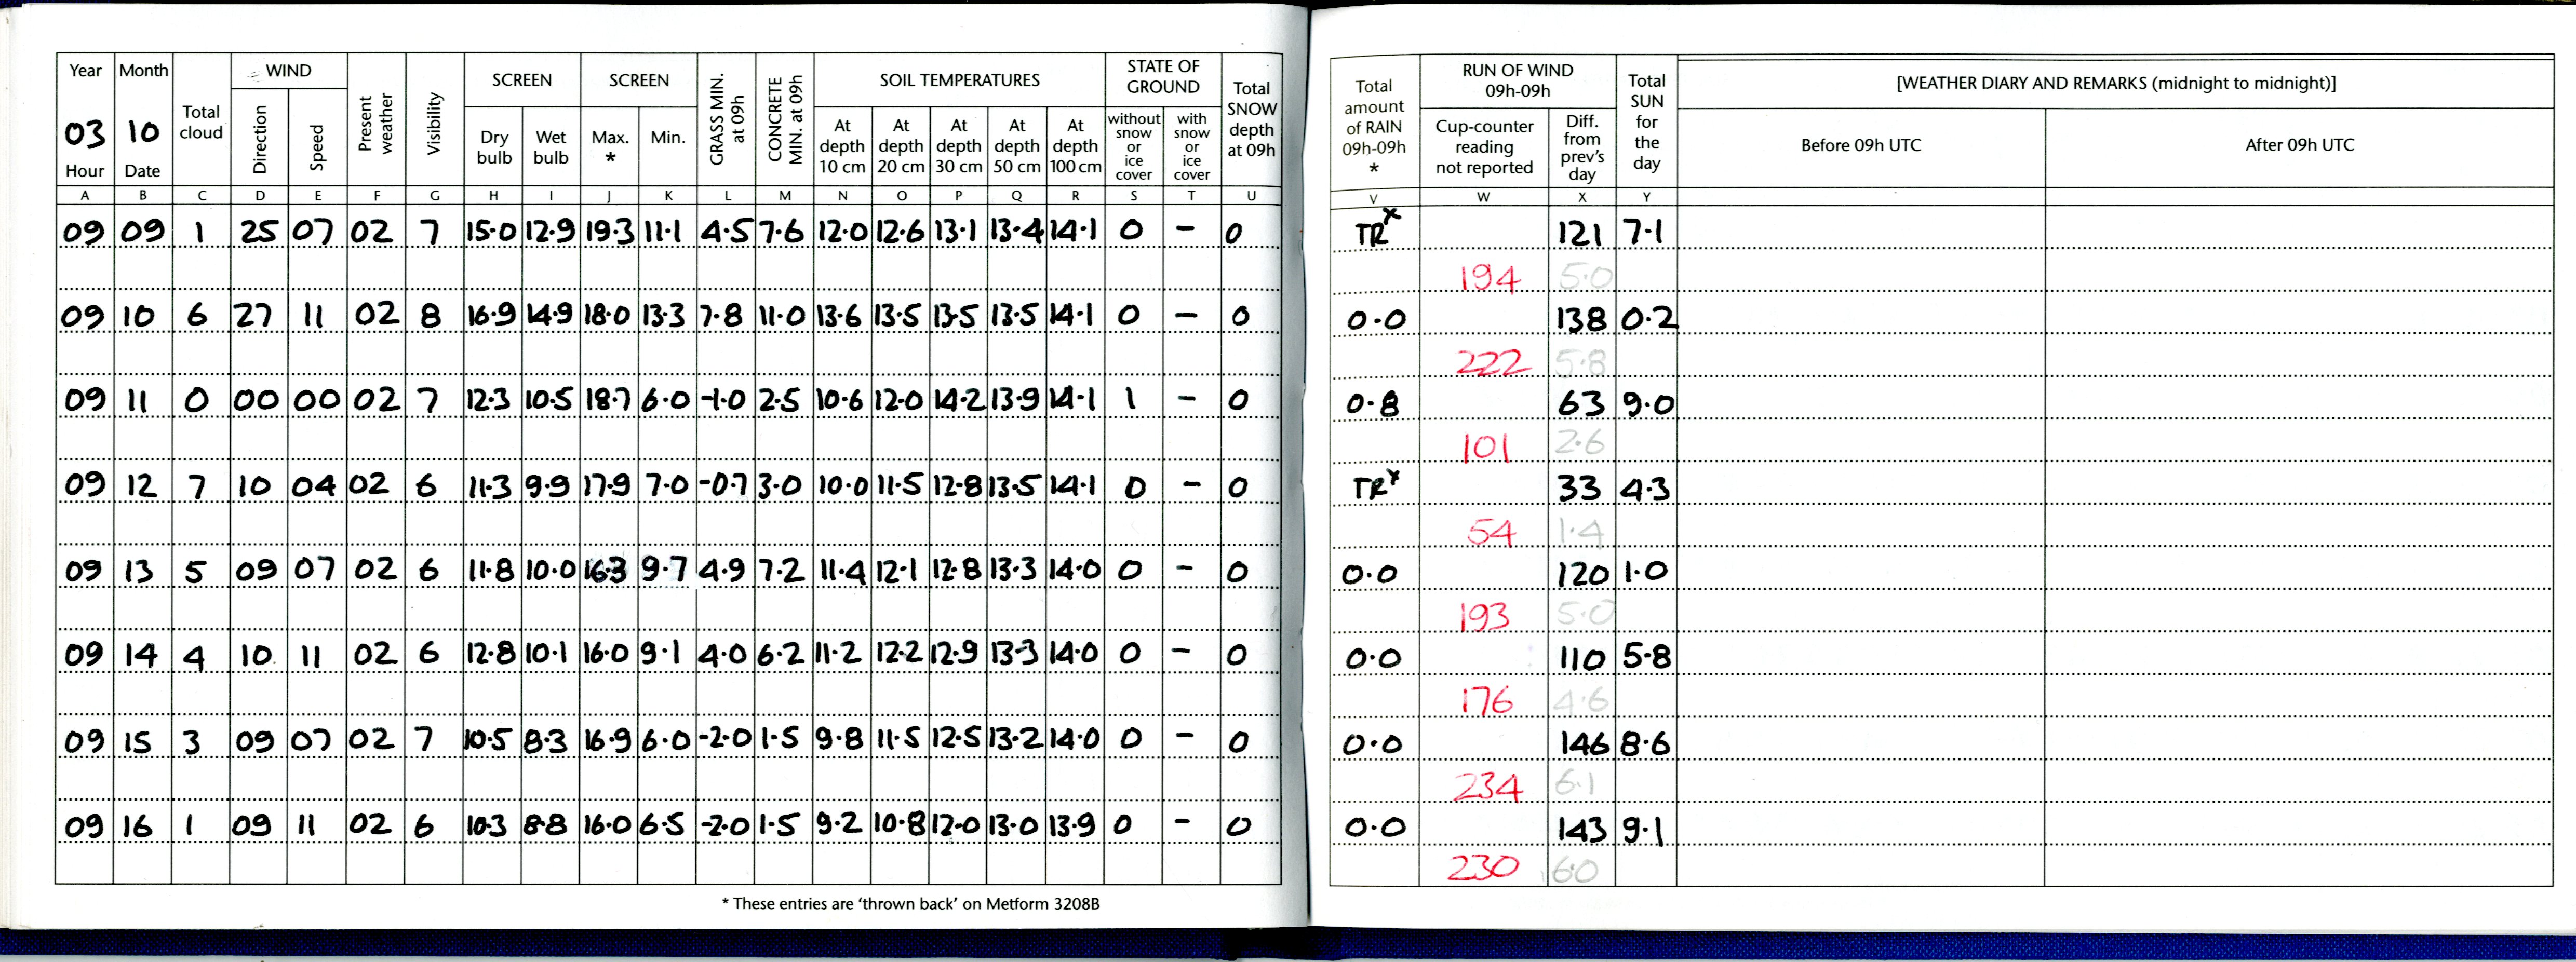 Year Month WIND SCREEN SCREEN SOIL TEMPERATURES STATE OF GROUND RUN OF WIND 09h-09h [WEATHER DIARY AND REMARKS (midnight to midnight)]
03 10 Total cloud Direction Speed Present weather Visibility Dry bulb Wet bulb Max. * Min. GRASS MIN. at 09h CONCRETE MIN. at 09h At depth 10 cm At depth 20 cm At depth 30 cm At depth 50 cm At depth 100 cm without snow or ice cover with snow or ice cover Total SNOW depth at 09h Total amount of RAIN 09h-09h * Cup-counter reading not reported Diff. from prev's day Total SUN for the day Before 09h UTC After 09h UTC
Hour Date
A B C D E F G H I J K L M N O P Q R S T U V W X Y
09 09 1 25 07 02 7 15.0 12.9 19.3 11.1 4.5 7.6 12.0 12.6 13.1 13.4 14.1 0 - 0 TRx 121 7.1
194 5.0
09 10 6 27 11 02 8 16.9 14.9 18.0 13.3 7.8 11.0 13.6 13.5 13.5 13.5 14.1 0 - 0 0.0 138 0.2
222 5.8
09 11 0 00 00 02 7 12.3 10.5 18.7 6.0 -1.0 2.5 10.6 12.0 14.2 13.9 14.1 1 - 0 0.8 63 9.0
101 2.6
09 12 7 10 04 02 6 11.3 9.9 17.9 7.0 -0.7 3.0 10.0 11.5 12.8 13.5 14.1 0 - 0 TRx 33 4.3
54 1.4
09 13 5 09 07 02 6 11.8 10.0 16.3 9.7 4.9 7.2 11.4 12.1 12.8 13.3 14.0 0 - 0 0.0 120 1.0
193 5.0
09 14 4 10 11 02 6 12.8 10.1 16.0 9.1 4.0 6.2 11.2 12.2 12.9 13.3 14.0 0 - 0 0.0 110 5.8
176 4.6
09 15 3 09 07 02 7 10.5 8.3 16.9 6.0 -2.0 1.5 9.8 11.5 12.5 13.2 14.0 0 - 0 0.0 146 8.6
234 6.1
09 16 1 09 11 02 6 10.3 8.8 16.0 6.5 -2.0 1.5 9.2 10.8 12.0 13.0 13.9 0 - 0 0.0 143 9.1
230 6.0
* These entries are 'thrown back' on Metform 3208B